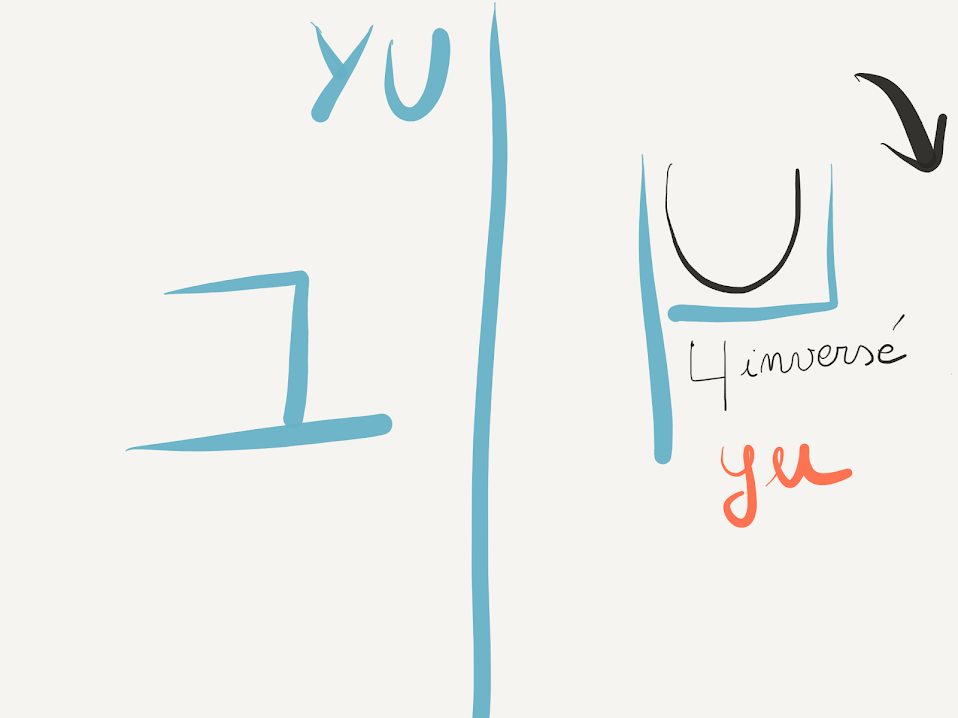 YU
ユ
U
4 inversé
yu